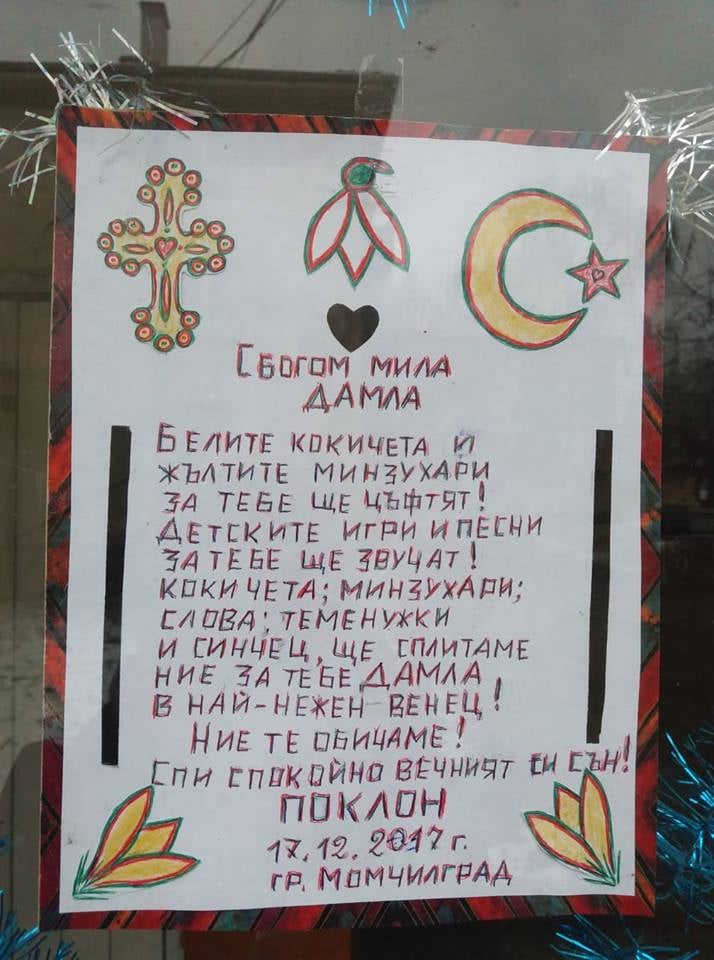 СБОГОМ МИЛА
ДАМЛА
БЕЛИТЕ КОКИЧЕТА И
ЖЪЛТИТЕ МИНЗУХАРИ
ЗА ТЕБЕ ЩЕ ЦЪФТЯТ!
ДЕТСКИТЕ ИГРИ И ПЕСНИ
ЗА ТЕБЕ ЩЕ ЗВУЧАТ!
КОКИЧЕТА; МИНЗУХАРИ;
СЛОВА; ТЕМЕНУЖКИ
И СИНЧЕЦ, ЩЕ СПЛИТАМЕ
НИЕ ЗА ТЕБЕ ДАМЛА
В НАЙ-НЕЖЕН ВЕНЕЦ!
НИЕ ТЕ ОБИЧАМЕ!
СПИ СПОКОЙНО ВЕЧНИЯТ СИ СЪН!
ПОКЛОН
17.12.2017 г.
ГР. МОМЧИЛГРАД